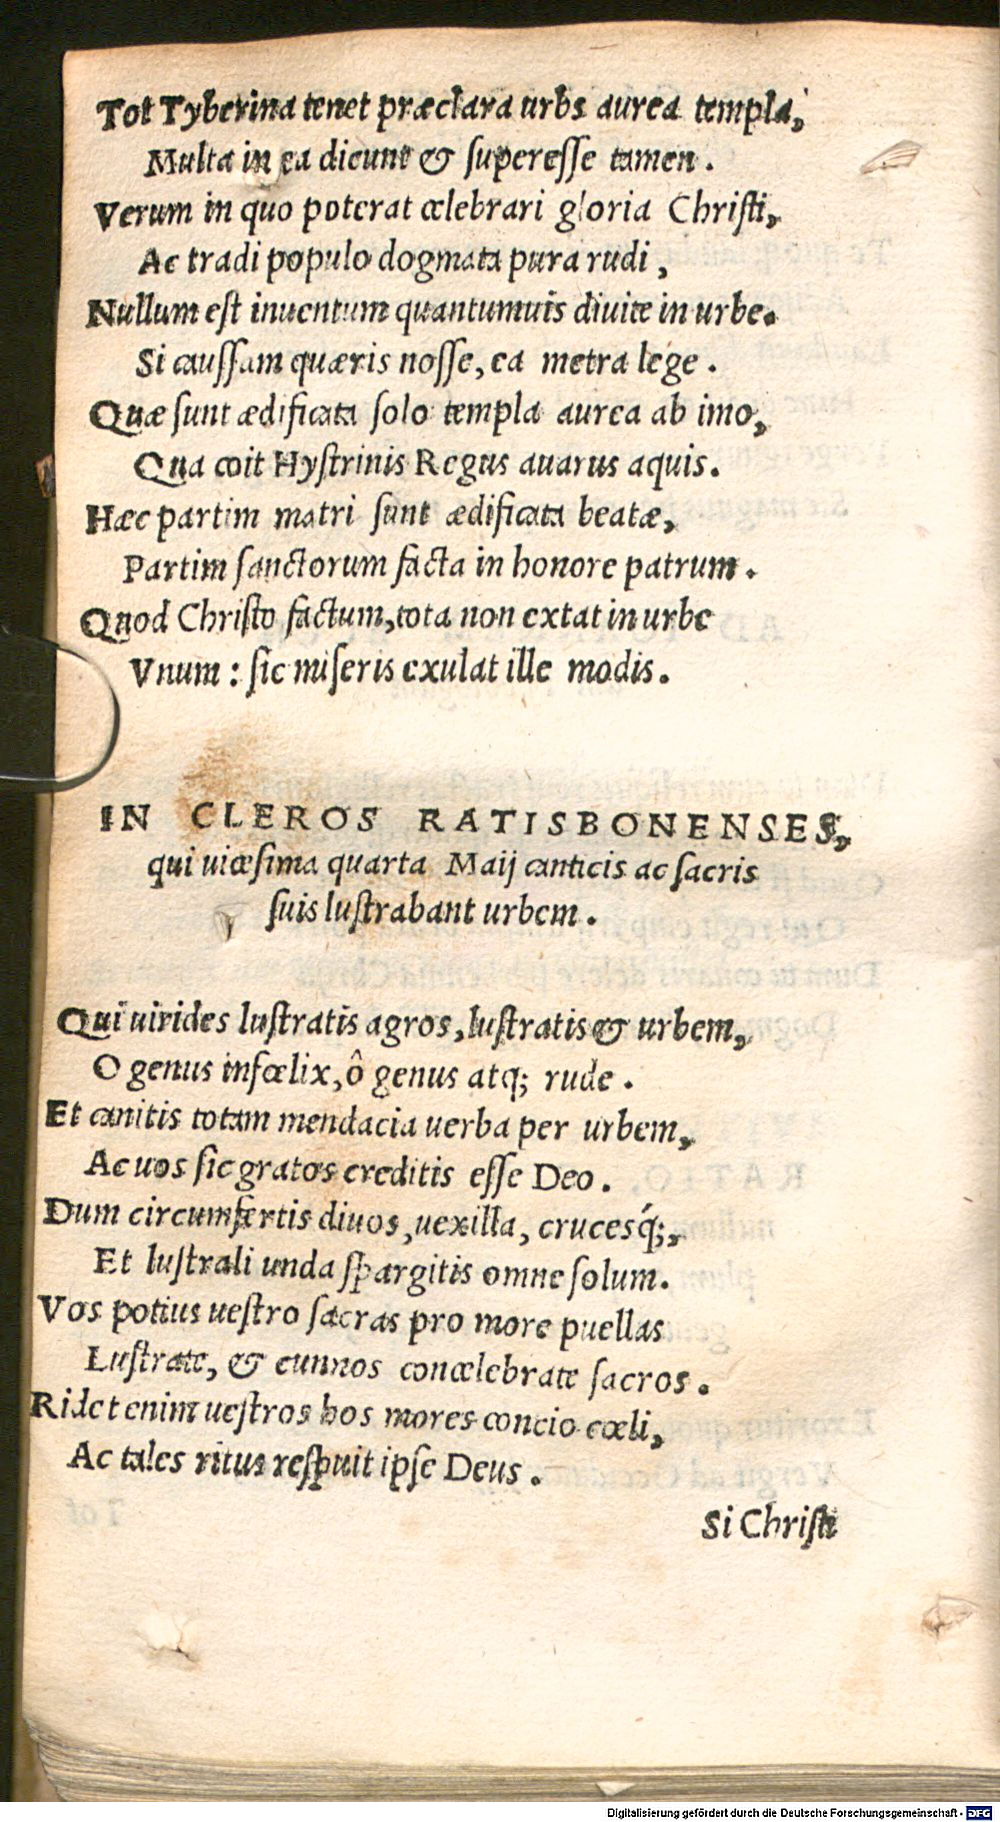 Tot Tyberina tenet præclara urbs aurea templa,
Multa in ea dicunt & superesse tamen.
Verum in quo poterat cęlebrari gloria Christi,
Ac tradi populo dogmata pura rudi,
Nullum est inuentum quantumuis diuite in urbe.
Si caussam quæris nosse, ea metra lege.
Quæ sunt ædificata solo templa aurea ab imo,
Qua coit Hystrinis Regus auarus aquis.
Hæc partim matri sunt ædificata beatæ,
Partim sanctorum facta in honore patrum.
Quod Christo factum, tota non extat in urbe
Vnum: sic miseris exulat ille modis.
IN CLEROS RATISBONENSES,
qui uicesima quarta Maij canticis ac sacris
suis lustrabant urbem.
Qui uirides lustratis agros, lustratis & urbem,
O genus infœlix, ô genus atq; rude.
Et canitis totam mendacia uerba per urbem,
Ac uos sic gratos creditis esse Deo.
Dum circumfertis diuos, uexilla, crucesq́;,
Et lustrali unda spargitis omne solum.
Vos potius uestro sacras pro more puellas
Lustrate, & cunnos concelebrate sacros.
Ridet enim uestros hos mores concio cœli,
Ac tales ritus respuit ipse Deus.
Si Christi
Digitalisierung gefördert durch die Deutsche Forschungsgemeinschaft - DFG